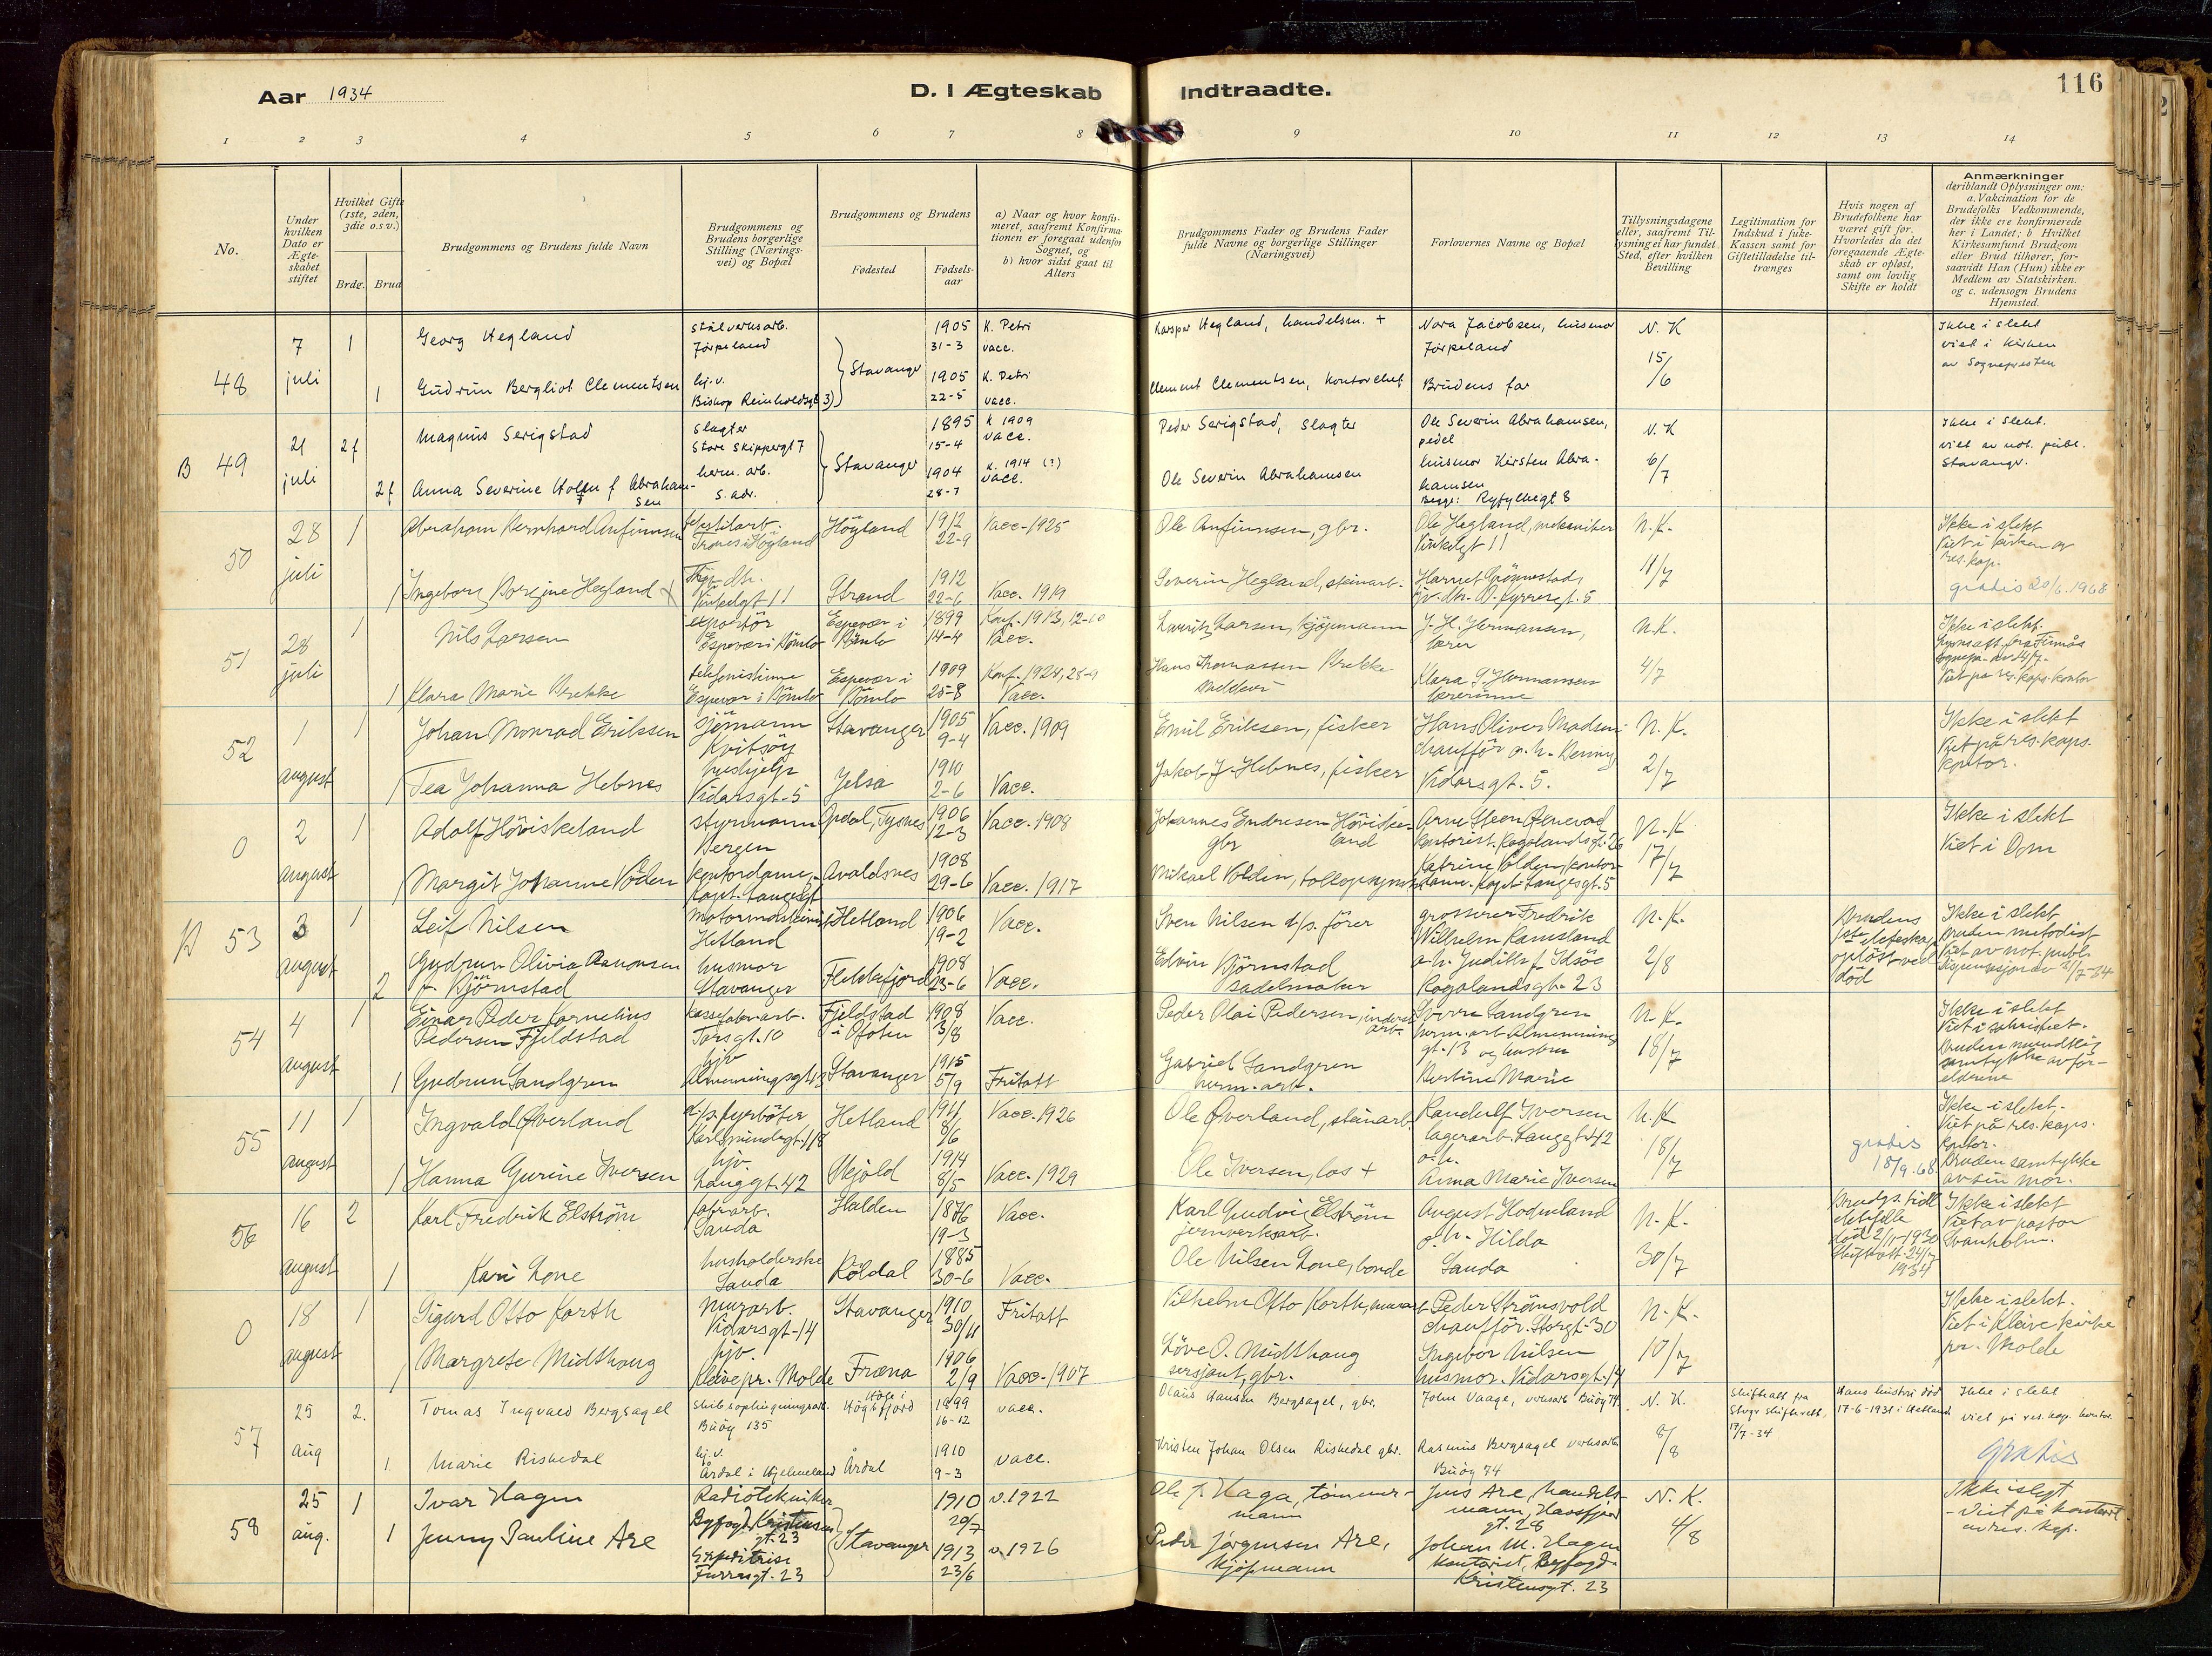 Aar 1934
D. I Ægteskab Indtraadte.
116
1 2 3 4 5 6 7 8 9 10 11 12 13 14
No.
Under hvilken Dato er Ægteskabet stiftet
Hvilket Gifte (1ste, 2den, 3die o.s.v.)
Brdg. Brud
Brudgommens og Brudens fulde Navn
Brudgommens og Brudens borgerlige Stilling (Næringsvei) og Bopæl
Brudgommens og Brudens
Fødested
Fødselsaar
a) Naar og hvor konfirmeret, saafremt Konfirmationen er foregaat udenfor Sognet, og
b) hvor sidst gaat til Alters
Brudgommens Fader og Brudens Fader fulde Navne og borgerlige Stillinger (Næringsvei)
Forlovernes Navne og Bopæl
Tillysningsdagene eller, saafremt Tillysning ei har fundet Sted, efter hvilken Bevilling
Legitimation for Indskud i Enke-Kassen samt for Giftetilladelse tiltrænges
Hvis nogen af Brudefolkene har været gift før. Hvorledes da det foregaaende Ægteskab er opløst, samt om lovlig Skifte er holdt
Anmærkninger
deriblandt Oplysninger om: a. Vakcination for de Brudefolks Vedkommende, der ikke ere konfirmerede her i Landet; b Hvilket Kirkesamfund Brudgom eller Brud tilhører, forsaavidt Han (Hun) ikke er Medlem av Statskirken. og c. udensogn Brudens Hjemsted.
48
7 juli
1
Georg Hegland
stålverksarb.
Jørpeland
Stavanger
1905
31-3
K. Petri
vacc.
Kasper Hegland, handelsm. +
Nora Jacobsen, husmor
Jørpeland
N. K
15/6
Ikke i slekt
viet i kirken
av Sognepresten
1
Gudrun Bergliot Clementsen
hj.v.
Biskop Reinholdsgt 3)
1905
22-5
K. Petri
vacc.
Clement Clementsen, kontorchef
Brudens far
B 49
21 juli
2 f
Magnus Serigstad
slagter
Store Skippergt 7
Stavanger
1895
15-4
K 1909
vacc.
Peder Serigstad, slagter
Ole Severin Abrahamsen,
pedel
N. K
6/7
Ikke i slekt.
viet av not. publ.
Stavanger.
2 f
Anna Severine Holen f Abrahamsen
herm. arb.
s. adr.
1904
28-7
K. 1914 (?)
vacc.
Ole Severin Abrahamsen
husmor Kirsten Abrahamsen
Begge: Ryfylkegt 8
50
28 juli
1
Abraham Bernhard Anfinnsen
tekstilarb.
Tronesi Høyland
Höyland
1912
22-9
Vacc. 1925
Ole Anfinnsen, gbr.
Ole Hegland, mekaniker
Vinkelgt 11
N.K.
11/7
Ikke i slekt
Viet i kirken av
res. kap.
gratis 20/6. 1968
1
Ingeborg Borgine Hegland
Vinkelgt 11
Strand
1912
22-6
Vacc. 1919
Severin Hegland, steinarb.
51
28 juli
1
Nils Larsen
eksportör
Espevær i Bömlo
Espevær i
Bömlo
1899
14-4
Konf. 1913, 12-10
Vacc.
Lauritz Larsen, kjöpmann
J. H. Hermansen,
lærer
N.K.
4/7
Ikke i slekt.
Viet på res. kaps. kontor
1
Klara Marie Brekke
telefonistinne
Espevær i Bömlo
Espevær i
Bömlo
1909
25-8
Konf. 1924, 28-9
Vacc.
Hans Thomassen Brekke
Klara G. Hermansen
lærerinne
52
1 august
1
Johan Monrad Eriksen
sjömann
Kvitsöy
Stavanger
1905
9-4
Vacc. 1909
Emil Eriksen, fisker
Hans Oliver Madsen
chaufför o.h. Kenny
Vidarsgt. 5.
N.K.
2/7
Ikke i slekt
Viet på res. kaps.
kontor.
1
Tea Johanna Hebnes
hushjelp
Vidarsgt. 5
Jelsa
1910
2-6
Vacc.
Jakob J. Hebnes, fisker
0
2 august
1
Adolf Höviskeland
styrmann
Bergen
Opdal, Tysnes
1906
12-3
Vacc. 1908
Johannes Endresen Höviskeland
gbr
kontorist. Rogalandsgt. 26
N.K
17/7
Ikke i slekt
Viet i Dom
1
Margit Johanne Volden
kontordame,
Kapt. Langesgt
Avaldsnes
1908
29-6
Vacc. 1917
Mikael Volden, tollopsynsm.
Katrine Volden, kontordame. Kapt. Langesgt. 5
53
3 august
1
Leif Nilsen
motormaskinist
Hetland
Hetland
1906
19-2
Vacc.
Sven Nilsen d/s. förer
grosserer Fredrik
Wilhelm Ramsland
N.K.
2/8
Brudens
1ste ekteskap
oplöst ved
död
Ikke i slekt
Bruden metodist
Viet av not. publ.
2
Gudrun Olivia Aanonsen
f. Björnstad
husmor
Stavanger
Flekkefjord
1908
23-6
Vacc.
Edvin Björnstad
sadelmaker
o.h. Judith f. Idsöe
Rogalandsgt. 23
54
4 august
1
Einar Peder Cornelius
Pedersen Fjeldstad
kassefabr. arb.
Torsgt. 10
Fjeldstad
i Ofoten
1908
3/8
Vacc.
Peder Olai Pedersen,
Sandgren
herm. arb Almenningsgt. 13 og hustru
Bertine Marie
N.K.
18/7
Ikke i slekt
Viet i sakristiet.
Bruden mundtlig
samtykke av foreldrene
1
Gudrun Sandgren
hjv
Almenningsgt 13
Stavanger
1915
5/9
Fritatt
Gabriel Sandgren
herm. arb.
55
11 august
1
Ingvald Øverland
d/s. fyrböter
Karlsminnegt. 118
Hetland
1911
8/6
Vacc. 1926
Ole Øverland, steinarb.
Randulf Iversen
lagerarb. Langgt. 42
o.h.
Anna Marie Iversen
N.K
18/7
gratis
18/9. 68
Ikke i slekt.
Viet på res. kaps.
kontor.
Bruden samtykke
av sin mor.
1
Hanna Gurine Iversen
hjv
Langgt. 42
Skjold
1914
8/5
Vacc. 1929
Ole Iversen, los +
56
16 august
2
Karl Fredrik Elström
fabr.arb.
Sauda
Halden
1876
19-3
Vacc.
Karl Ludvig Elström
jernverksarb.
August Hodneland
o.h. Hilda
Sauda
N.K.
30/7
Brudgs. tidl
ektefelle
död 2/11-1930
Skifteatt. 24/7
1934
Ikke i slekt
Viet av pastor
Svanholm.
1
Kari Lone
husholderske
Sauda
Röldal
1885
30-6
Vacc.
Ole Nilsen Lone, bonde
0
18 august
1
Sigurd Otto Korth
murarb.
Vidarsgt. 14
Stavanger
1910
30/11
Fritatt
Vilhelm Otto Korth, murarb
Peder Strömsvold
chaufför. Storgt. 30
N.K.
10/7
Ikke i slekt.
Viet i Kleive kirke
pr. Molde
1
Margrete Midthaug
hjv.
Kleive pr. Molde
Fræna
1906
2/9
Vacc. 1907
Löve O. Midthaug
sersjant, gbr.
Ingebor Nilsen
husmor. Vidarsgt. 14
57
25 aug
2.
Tomas Ingvald Bergsagel
skibsophugningsarb.
Buöy 135
Höle i
Högsfjord
1899
16-12
vacc.
Olaus Hansen Bergsagel, gbr.
John Vaage, verksarb Buöy 74
N. K.
8/8
Skifteatt fra
Stvgr skifterett,
17/7-34
Hans hustru död
17-6-1931 i Hetland
Ikke i slekt
viet på res. kap. kontor.
Gratis
1
Marie Riskedal
hj.v.
Årdal i Hjelmeland
Årdal
1910
9-3
vacc.
Kristen Johan Olsen Riskedal gbr.
Rasmus Bergsagel verksarb
Buöy 74
58
25 aug.
1
Ivar Hagen
Radiotekniker
Byfogd Kristensens
gt. 23
Stavanger
1910
20/7
v. 1922
Ole J. Haga, tømmermann
Jens Are, handelsmann,
gt. 28
N. K.
4/8
Ikke i slegt
- Viet på kontoret
av res. kap.
1
Jenny Pauline Are
Expeditrise
Furrasgt. 23
1913
23/6
v. 1926
Peder Jörgensen Are,
Kjøpmann
Johan M. Hagen
kontorist, Byfogd
Kristensgt. 23